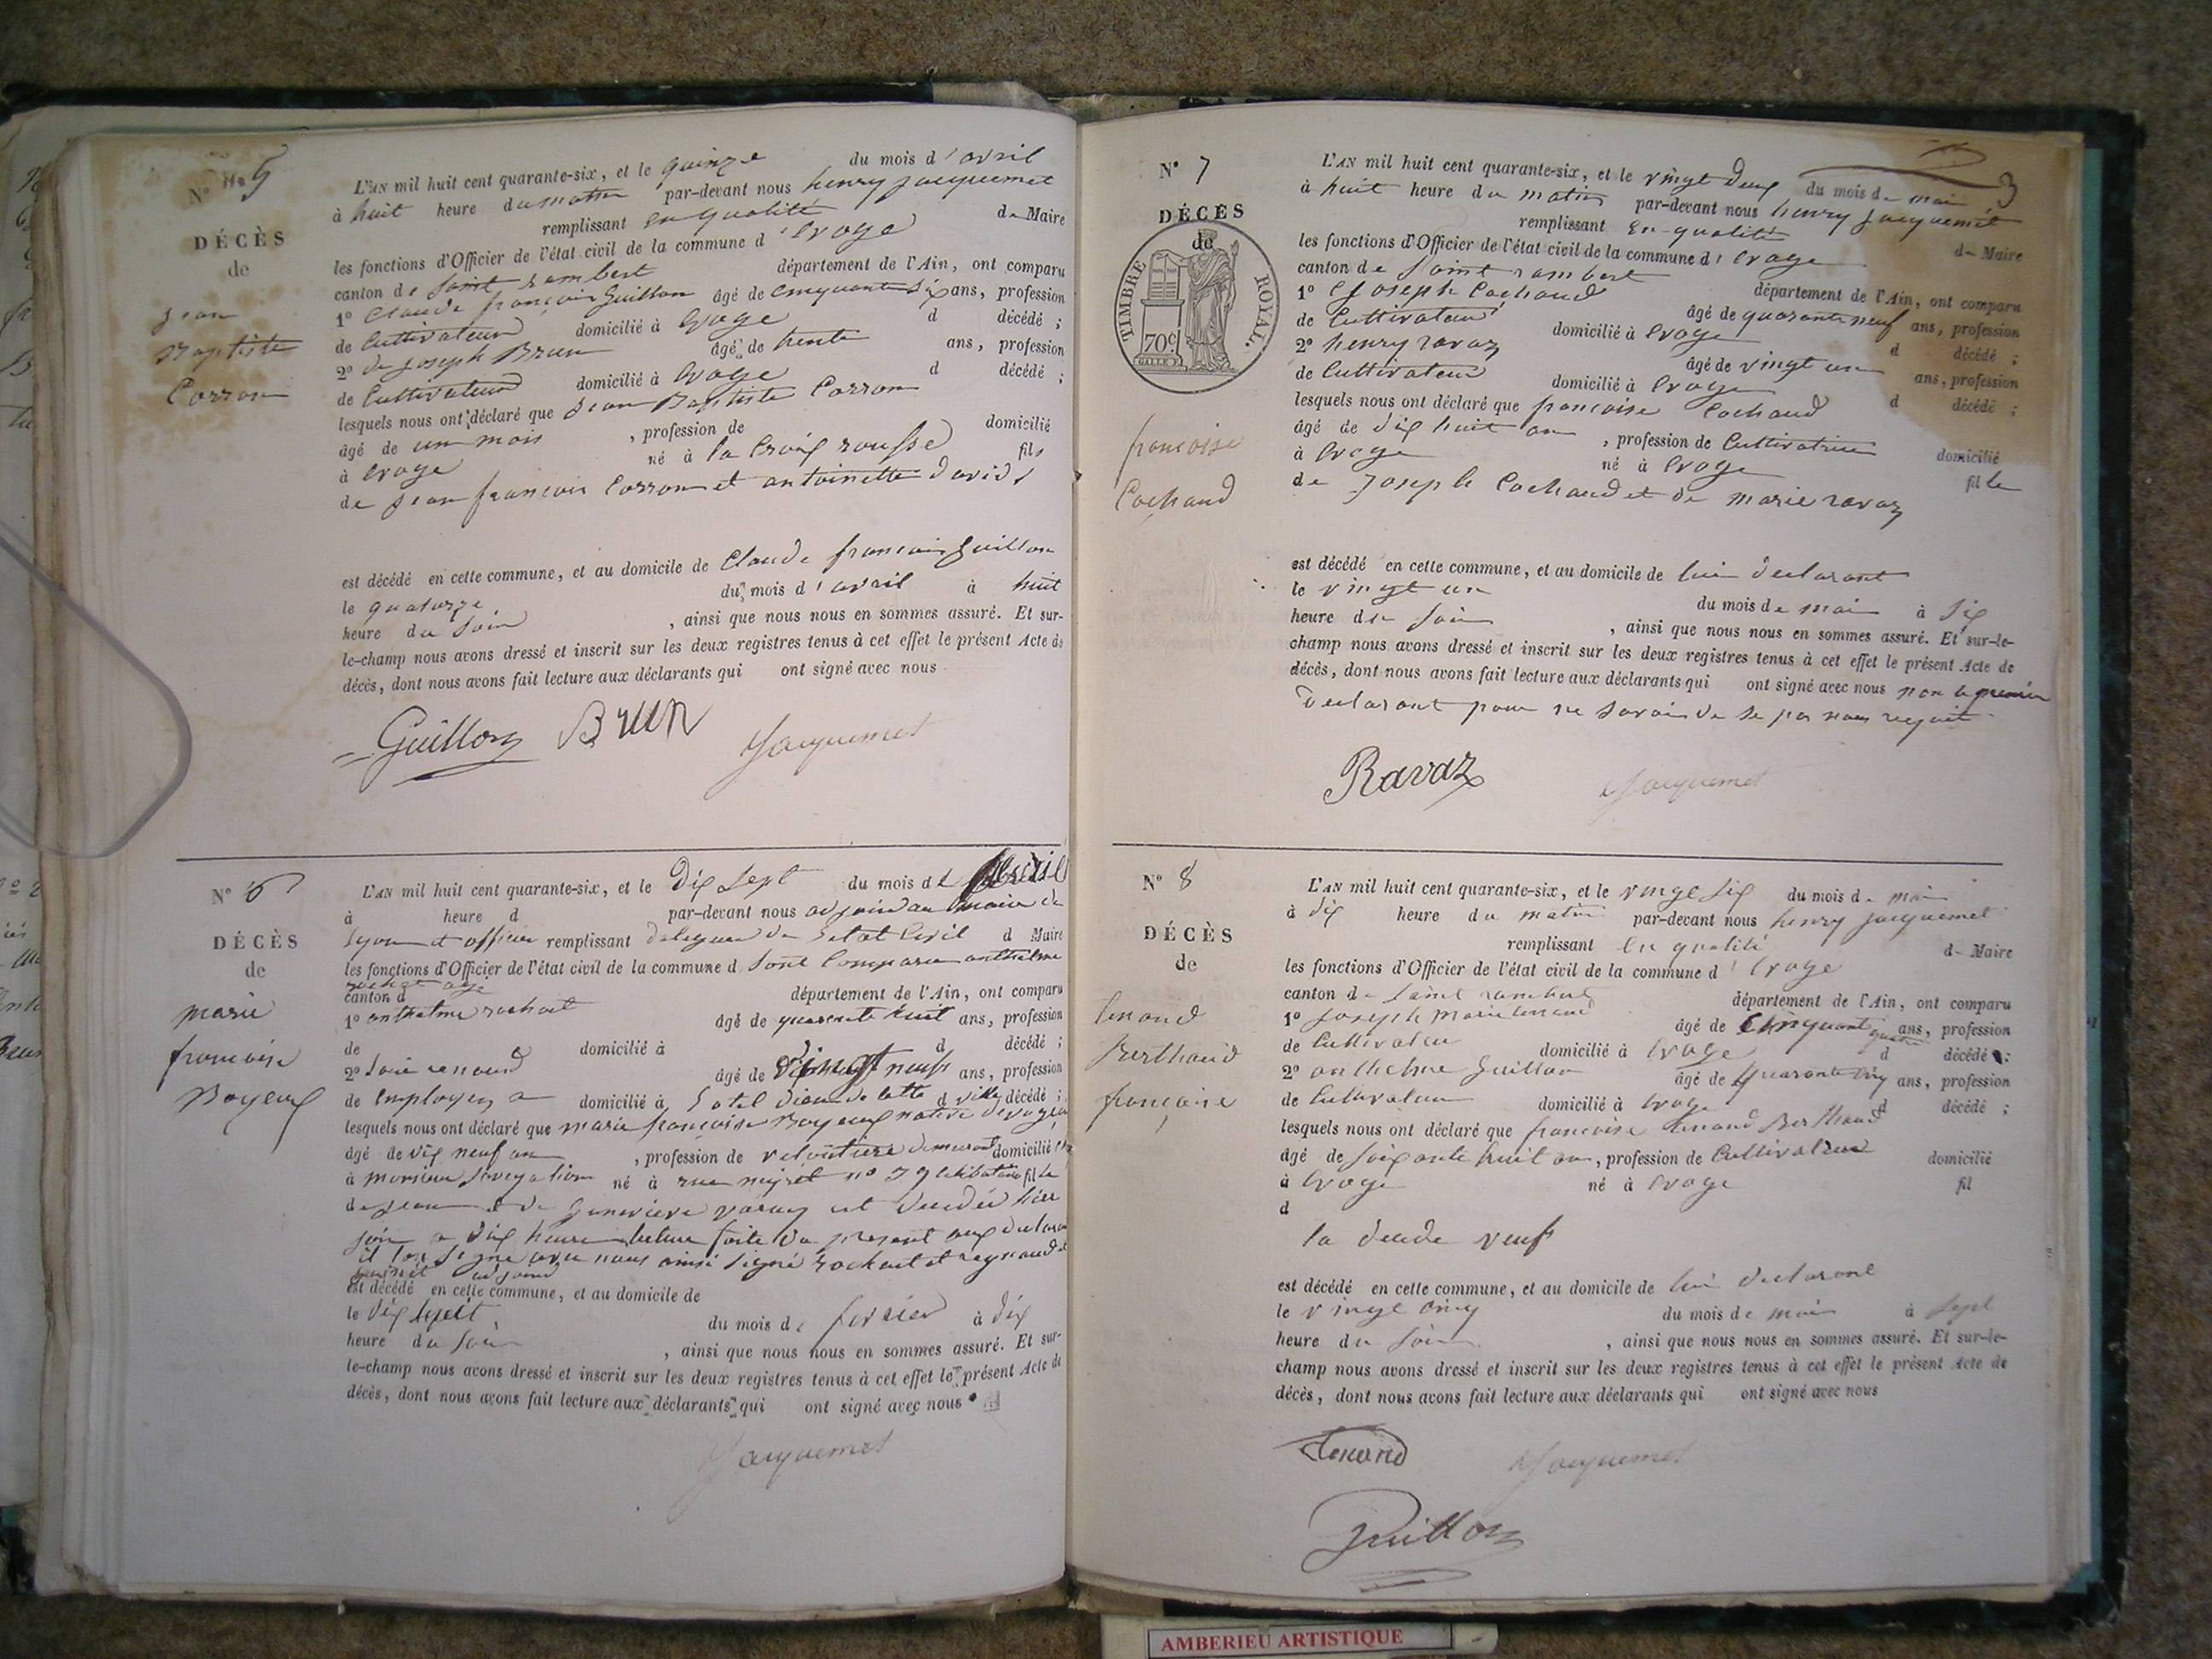 N° 5
DÉCÈS
de
Jean
Baptiste
Corron
L'AN mil huit cent quarante-six, et le quinze du mois d'avril
à huit heure du matin par-devant nous henry jacquemet
remplissant en qualité de Maire
les fonctions d'Officier de l'état civil de la commune d'evoge
canton de Saint rambert département de l'Ain, ont comparu
1° Claude françois Guillon âgé de cinquante six ans, profession
de Cultivateur domicilié à Evoge d décédé ;
2° de joseph Brun âgé de trente ans, profession
de Cultivateur domicilié à Evoge d décédé ;
lesquels nous ont déclaré que Jean Baptiste Corron
âgé de un mois , profession de domicilié
à Evoge né à la Croix rousse fils
de jean françois Corron et antoinette david
est décédé en cette commune, et au domicile de Claude françois Guillon
le quatorze du mois d'avril à huit
heure du soir , ainsi que nous nous en sommes assuré. Et sur-
le-champ nous avons dressé et inscrit sur les deux registres tenus à cet effet le présent Acte de
décès, dont nous avons fait lecture aux déclarants qui ont signé avec nous
Guillon Brun Jacquemet
N° 6
DÉCÈS
de
marie
françoise
Boyeux
L'AN mil huit cent quarante-six, et le dix sept du mois de
à heure d par-devant nous adjoint au maire de
Lyon et officier remplissant de l'etat Civil d Maire
les fonctions d'Officier de l'état civil de la commune d Sont Comparu anthelme
rochat age
canton d département de l'Ain, ont comparu
1° anthelme rochat âgé de quarante huit ans, profession
de domicilié à d décédé ;
2° âgé de vingt neuf ans, profession
de Employez a domicilié à l'otel dieu de cette d ville décédé ;
lesquels nous ont déclaré que marie françoise Boyeux native
âgé de dix neuf an , profession de demeurant domicilié
à né à rue n° 29 fille
de jean et de Genevieve est decedée hier
soir a dix heure lecture faite du present aux
il ont Signé avec nous ainsi Signé rochat et reynaud
adjoint
est décédé en cette commune, et au domicile de
le dix sept du mois de fevrier à dix
heure du soir , ainsi que nous nous en sommes assuré. Et sur-
le-champ nous avons dressé et inscrit sur les deux registres tenus à cet effet le présent Acte de
décès, dont nous avons fait lecture aux déclarants qui ont signé avec nous
Jacquemet
3
N° 7
DÉCÈS
de
TIMBRE ROYAL.
70c
françoise
Cochaud
L'AN mil huit cent quarante-six, et le vingt deux du mois de mai
à huit heure du matin par-devant nous henry jacquemet
remplissant En qualité de Maire
les fonctions d'Officier de l'état civil de la commune d'evoge
canton de Saint rambert département de l'Ain, ont comparu
1° Joseph Cochaud âgé de quarante neuf ans, profession
de Cultivateur domicilié à Evoge d décédé ;
2° henry ravaz âgé de vingt un ans, profession
de Cultivateur domicilié à Evoge d décédé ;
lesquels nous ont déclaré que françoise Cochaud
âgé de dix huit an , profession de Cultivatrice domicilié
à Evoge né à Evoge fille
de Joseph Cochaud et de marie ravaz
est décédé en cette commune, et au domicile de lui declarant
le vingt un du mois de mai à six
heure du soir , ainsi que nous nous en sommes assuré. Et sur-le-
champ nous avons dressé et inscrit sur les deux registres tenus à cet effet le présent Acte de
décès, dont nous avons fait lecture aux déclarants qui ont signé avec nous non le premier
Declarant pour ne savoir de se par nous requit
Ravaz Jacquemet
N° 8
DÉCÈS
de
tenand
Berthaud
françoise
L'AN mil huit cent quarante-six, et le vingt six du mois de mai
à dix heure du matin par-devant nous henry jacquemet
remplissant En qualité de Maire
les fonctions d'Officier de l'état civil de la commune d'Evoge
canton de Saint rambert département de l'Ain, ont comparu
1° Joseph marie tenand âgé de Cinquante quatre ans, profession
de Cultivateur domicilié à Evoge d décédé ;
2° anthelme Guillon âgé de quarante cinq ans, profession
de Cultivateur domicilié à Evoge d décédé ;
lesquels nous ont déclaré que françoise tenand Berthaud
âgé de soixante huit an , profession de Cultivateur domicilié
à Evoge né à Evoge fil
d
la decede veuf
est décédé en cette commune, et au domicile de lui declarant
le vingt cinq du mois de mai à sept
heure du soir , ainsi que nous nous en sommes assuré. Et sur-le-
champ nous avons dressé et inscrit sur les deux registres tenus à cet effet le présent Acte de
décès, dont nous avons fait lecture aux déclarants qui ont signé avec nous
Tenand Jacquemet
Guillon
AMBERIEU ARTISTIQUE